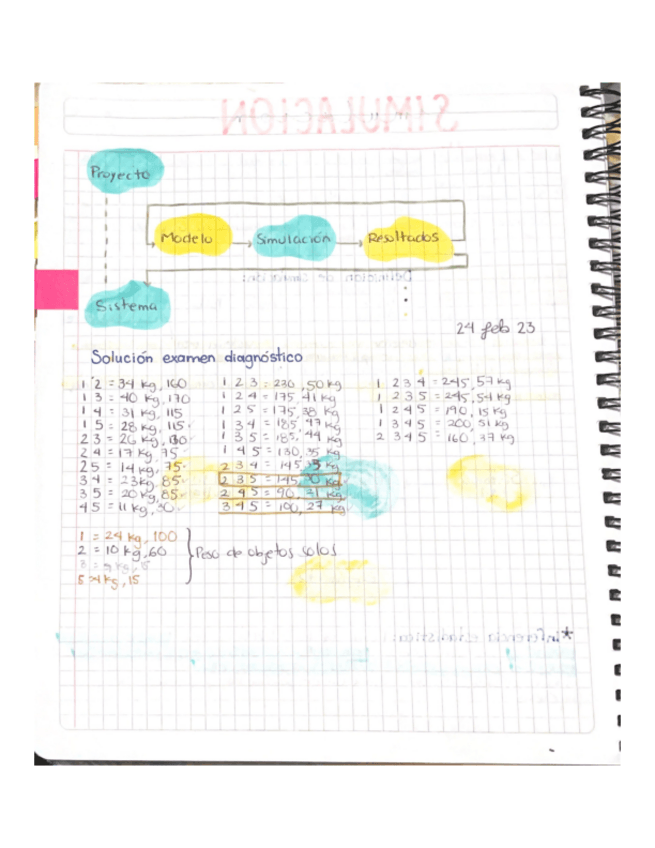 SIMULACIÓN
Proyecto
Modelo
Simulación
Resultados
Definición de simulación:
Sistema
24 feb 23
Solución examen diagnóstico
1 2 = 34 kg, 160
1 3 = 40 kg, 170
1 4 = 31 kg, 115
1 5 = 28 kg, 115
2 3 = 26 kg, 130
2 4 = 17 kg, 75
2 5 = 14 kg, 75
3 4 = 23 kg, 85
3 5 = 20 kg, 85
4 5 = 11 kg, 30
1 2 3 = 230, 50 kg
1 2 4 = 175, 41 kg
1 2 5 = 175, 38 kg
1 3 4 = 185, 47 kg
1 3 5 = 185, 44 kg
1 4 5 = 130, 35 kg
2 3 4 = 145, kg
2 3 5 = 145, 30 kg
2 4 5 = 90, 21 kg
3 4 5 = 100, 27 kg
1 2 3 4 = 245, 57 kg
1 2 3 5 = 245, 54 kg
1 2 4 5 = 190, 15 kg
1 3 4 5 = 200, 51 kg
2 3 4 5 = 160, 37 kg
1 = 24 kg, 100
2 = 10 kg, 60
5 = 4 kg, 15
Peso de objetos solos
*Inferencia estadística: